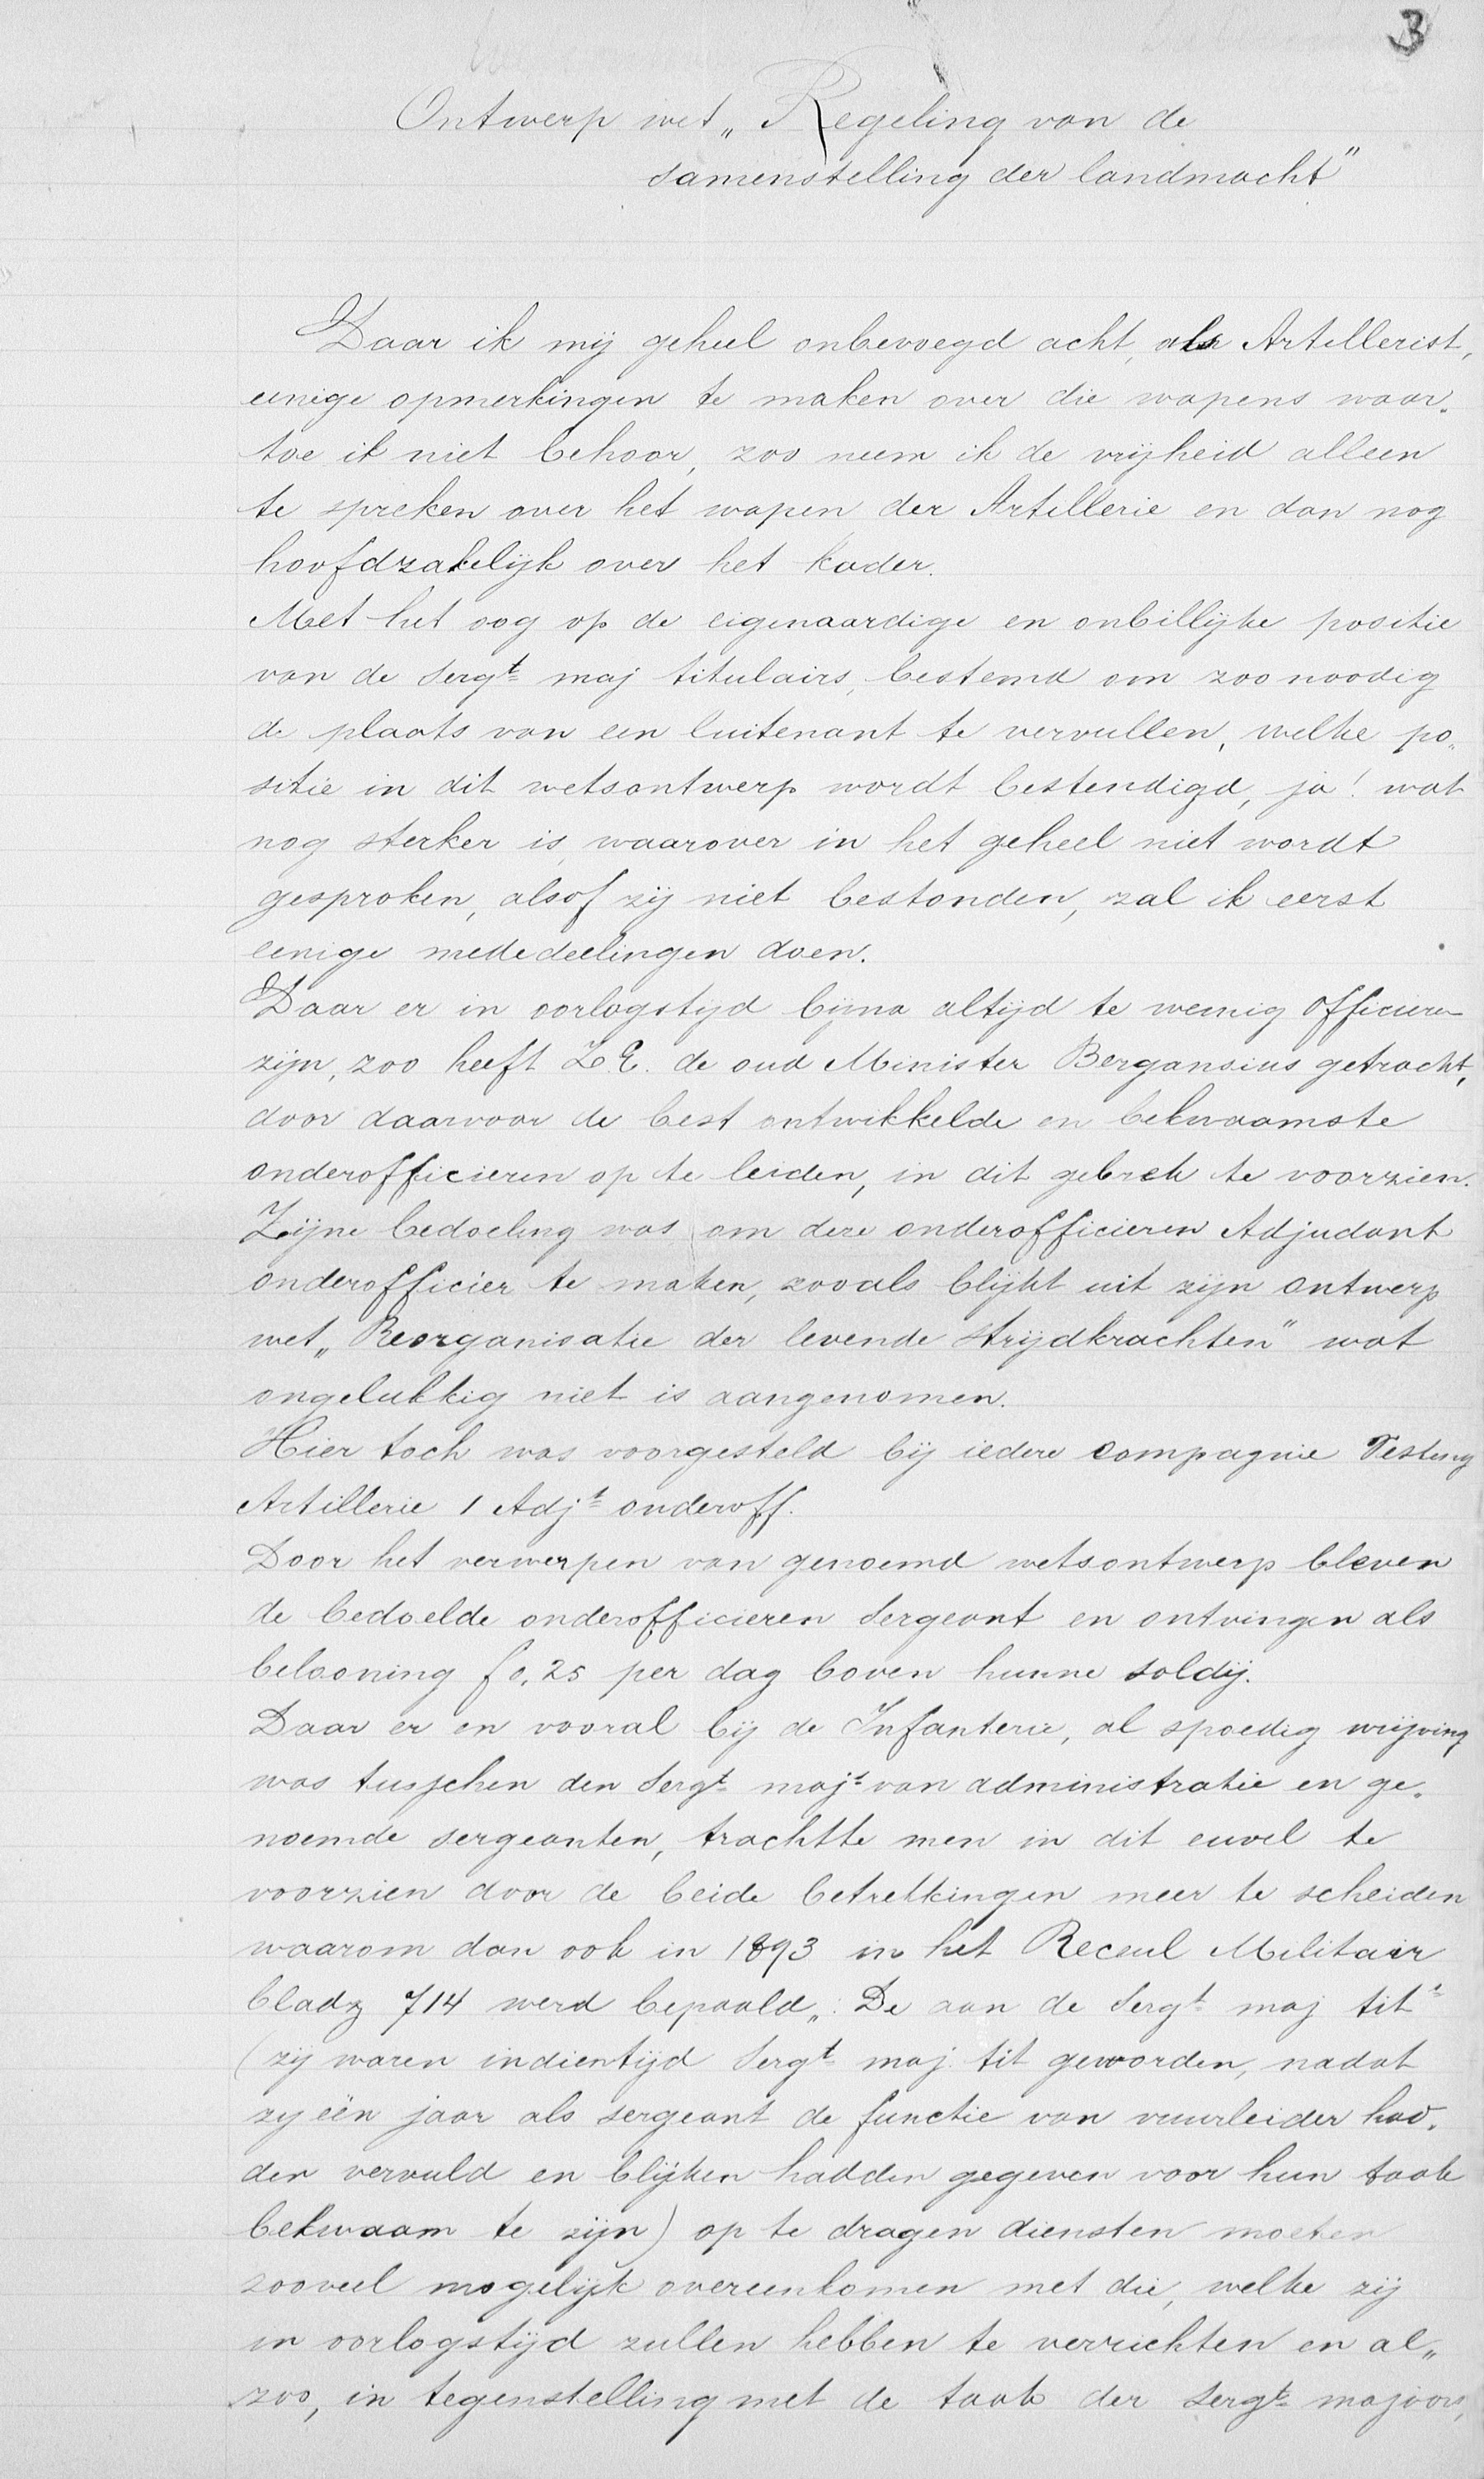 3
Ontwerp wet „Regeling van de
samenstelling der landmacht"
Daar ik mij geheel onbevoegd acht, als Artillerist,
eenige opmerkingen te maken over die wapens waar„
toe ik niet behoor, zoo neem ik de vrijheid alleen
te spreken over het wapen der Artillerie en dan nog
hoofdzakelijk over het kader.
Met het oog op de eigenaardige en onbillijke positie
van de Sergt maj titulairs, bestemd om zoo noodig
de plaats van een luitenant te vervullen, welke po„
sitie in dit wetsontwerp wordt bestendigd, ja! wat
nog sterker is, waarover in het geheel niet wordt
gesproken, alsof zij niet bestonden, zal ik eerst
eenige mededeelingen doen.
Daar er in oorlogstijd bijna altijd te weinig officieren
zijn, zoo heeft Z.E. de oud Minister Bergansius getracht,
door daarvoor de best ontwikkelde en bekwaamste
onderofficieren op te leiden, in dit gebrek te voorzien.
Zijne bedoeling was om deze onderofficieren Adjudant
onderofficier te maken, zooals blijkt uit zijn ontwerp
wet „Reorganisatie der levende strijdkrachten" wat
ongelukkig niet is aangenomen.
Hier toch was voorgesteld bij iedere compagnie Vesting
Artillerie 1 Adjt onderoff.
Door het verwerpen van genoemd wetsontwerp bleven
de bedoelde onderofficieren Sergeant en ontvingen als
belooning f 0,25 per dag boven hunne soldij.
Daar er en vooral bij de Infanterie, al spoedig wrijving
was tusschen den Sergt majr van administratie en ge„
noemde sergeanten, trachtte men in dit euvel te
voorzien door de beide betrekkingen meer te scheiden
waarom dan ook in 1893 in het Receuil Militair
bladz 714 werd bepaald „: De aan de Sergt maj titr
(zij waren indientijd Sergt maj. tit geworden, nadat
zij één jaar als sergeant de functie van vuurleider had„
den vervuld en blijken hadden gegeven voor hun taak
bekwaam te zijn) op te dragen diensten moeten
zooveel mogelijk overeenkomen met die, welke zij
in oorlogstijd zullen hebben te verrichten en al„
zoo, in tegenstelling met de taak der Sergt majoors,